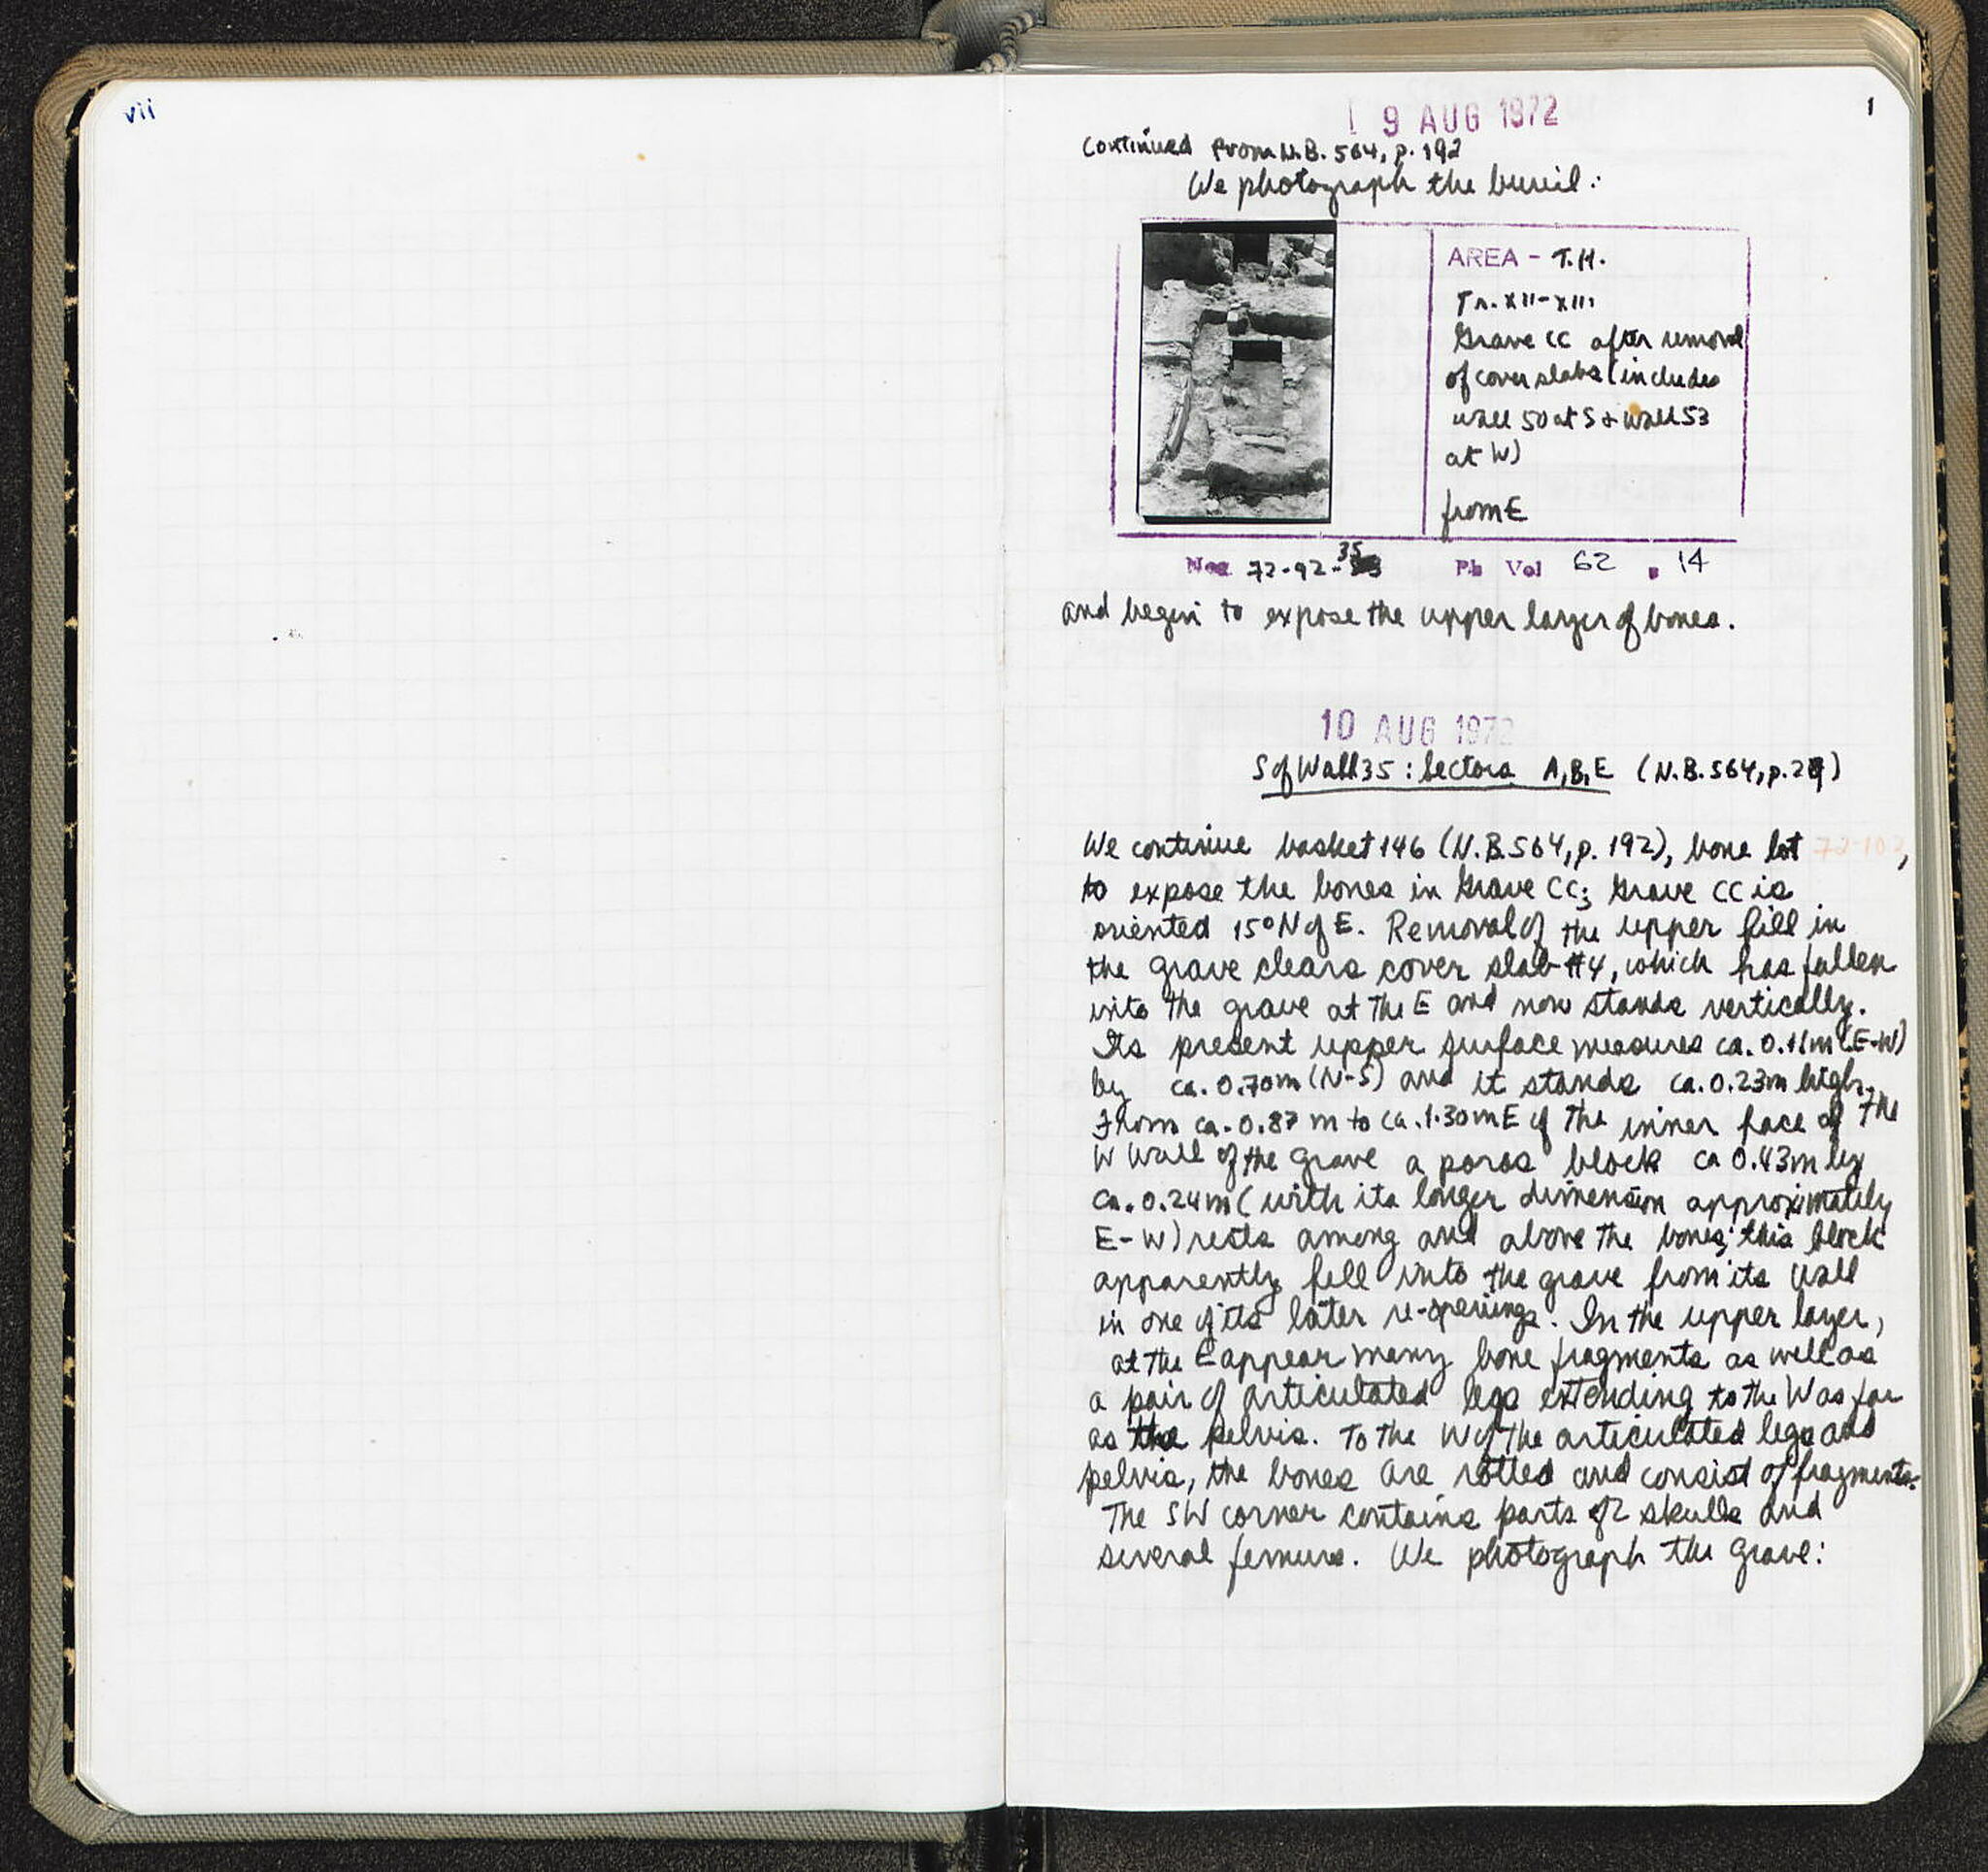 vii
1
9 AUG 1972
Continued from N.B. 564, p. 192
We photograph the buriil:
AREA - T.H.
Tr. XII-XIII
Grave CC after removal
of cover slabs (includes
wall 50 at S + wall 53
at W)
from E
Neg 72-92-35
Ph Vol 62 . 14
and begin to expose the upper layer of bones.
10 AUG 1972
S of Wall 35 : Sectors A, B, E (N.B. 564, p. 29)
We continue basket 146 (N.B. 564, p. 192), bone lot 72-102,
to expose the bones in Grave CC; Grave CC is
oriented 15° N of E. Removal of the upper fill in
the grave clears cover slab #4, which has fallen
into the grave at the E and now stands vertically.
Its present upper surface measures ca. 0.11m (E-W)
by ca. 0.70m (N-S) and it stands ca. 0.23m high.
From ca. 0.87 m to ca. 1.30m E of the inner face of the
W wall of the grave a poros block ca 0.43m by
ca. 0.24m (with its longer dimension approximately
E-W) rests among and above the bones; this block
apparently fell into the grave from its wall
in one of its later re-openings. In the upper layer,
at the E appear many bone fragments as well as
a pair of articulated legs extending to the W as far
as the pelvis. To the W of the articulated legs and
pelvis, the bones are rotted and consist of fragments.
The SW corner contains parts of 2 skulls and
several femurs. We photograph the grave: